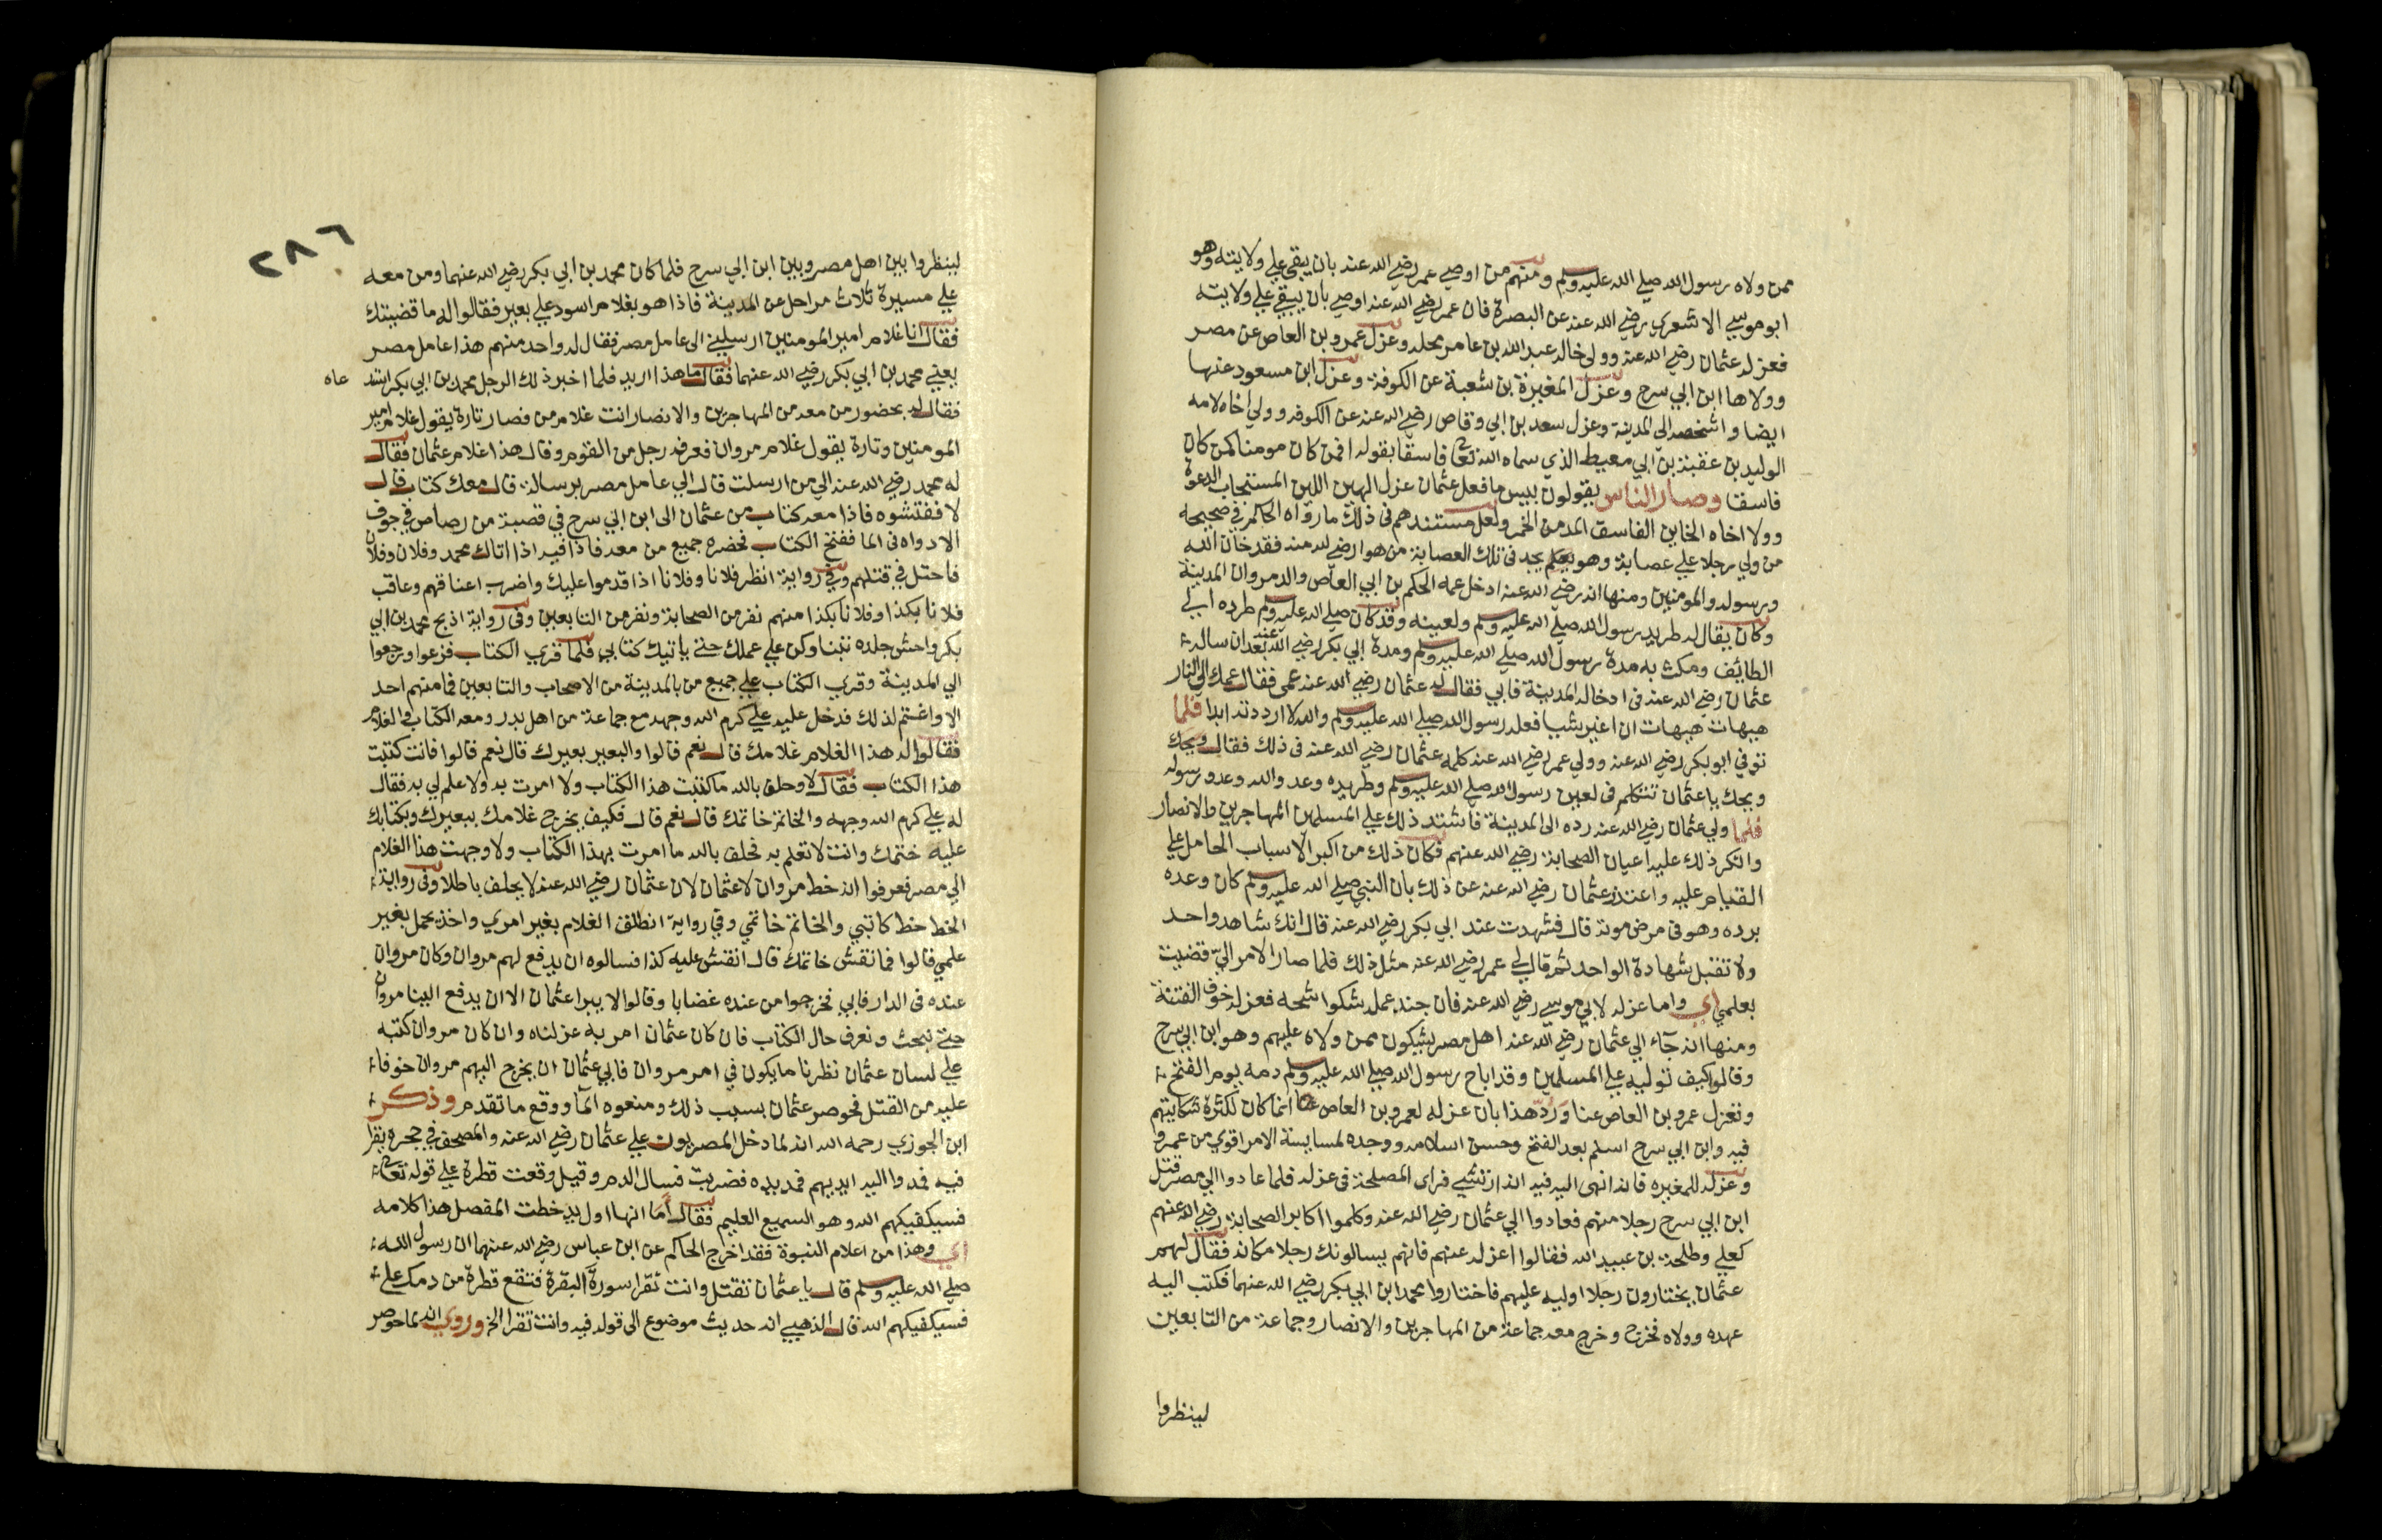 ممن ولاه رسول الله صلي الله عليه وسلم ومنهم من اوصي عمر رضي الله عنه بان يبقي علي ولايته وهو
ابو موسي الاشعري رضي الله عنه عن البصرة فان عمر رضي الله عنه اوصي بان يبقي علي ولايته
فعزله عثمان رضي الله عنه وولي خاله عبد الله بن عامر محله وعزل عمرو بن العاص عن مصر
وولاها ابن ابي سرح وعزل المغيرة بن شعبة عن الكوفة وعزل ابن مسعود عنها
ايضا واشخصه الي المدينة وعزل سعد بن ابي وقاص رضي الله عنه عن الكوفه وولي اخاه لامه
الوليد بن عقبة بن ابي معيط الذي سماه الله تعا فاسقا بقوله افمن كان مومنا كمن كان
فاسقا وصار الناس يقولون بيس ما فعل عثمان عزل الهين اللين المستجاب الدعوة
وولا اخاه الخاين الفاسق المدمن الخمر ولعل مستندهم في ذلك ما رواه الحاكم في صحيحه
من ولي رجلا علي عصابة وهو يعلم يجد في تلك العصابة من هو ارضي لله منه فقد خان الله
ورسوله والمومنين ومنها انه رضي الله عنه ادخل عمه الحكم بن ابي العاص والد مروان المدينة
وكان يقال له طريد رسول الله صلي الله عليه وسلم ولعينه وقد كان صلي الله عليه وسلم طرده الي
الطائف ومكث به مدة رسول الله صلي الله عليه وسلم ومدة ابي بكر رضي الله عنه بعد ان ساله
عثمان رضي الله عنه في ادخاله المدينة فابي فقال له عثمان رضي الله عنه عمي فقال عمك الي النار
هيهات هيهات ان اغير شيا فعله رسول الله صلي الله عليه وسلم والله لا رددته ابدا فلما
توفي ابو بكر رضي الله عنه وولي عمر رضي الله عنه كلمه عثمان رضي الله عنه في ذلك فقال ويحك
ويحك يا عثمان تتكلم في لعين رسول الله صلي الله عليه وسلم وطريده وعدو الله وعدو رسوله
فلما ولي عثمان رضي الله عنه رده الي المدينة فاشتد ذلك علي المسلمين المهاجرين والانصار
وانكر ذلك عليه اعيان الصحابة رضي الله عنهم فكان ذلك من اكبر الاسباب الحامل علي
القيام عليه واعتذر عثمان رضي الله عنه عن ذلك بان النبي صلي الله عليه وسلم كان وعده
برده وهو في مرض موته قال فشهدت عند ابي بكر رضي الله عنه قال انك شاهد واحد
ولا تقبل شهادة الواحد ثم قال لي عمر رضي الله عنه مثل ذلك فلما صار الامر الي قضيت
بعلمي اي واما عزله لابي موسي رضي الله عنه فان جند عمله شكوا شحه فعزله خوف الفتنة
ومنها انه جآء الي عثمان رضي الله عنه اهل مصر يشكون ممن ولاه عليهم وهو ابن ابي سرح
وقالوا كيف توليه علي المسلمين وقد اباح رسول الله صلي الله عليه وسلم دمه يوم الفتح
وتعزل عمرو بن العاص عنا ورد هذا بان عزله لعمرو بن العاص انما كان لكثرة شكايتهم
فيه وابن ابي سرح اسلم بعد الفتح وحسن اسلامه ووجده لسياسة الامر اقوي من عمرو
وعزله للمغيره فانه انهي اليه فيه انه ارتشي فراي المصلحة في عزله فلما عادوا الي مصر قتل
ابن ابي سرح رجلا منهم فعادوا الي عثمان رضي الله عنه وكلموا اكابر الصحابة رضي الله عنهم
كعلي وطلحة بن عبيد الله فقالوا اعزله عنهم فانهم يسالونك رجلا مكانه فقال لهم
عثمان يختارون رجلا اوليه عليهم فاختاروا محمد ابن ابي بكر رضي الله عنهما فكتب اليه
عهده وولاه فخرج وخرج معه جماعة من المهاجرين والانصار وجماعة من التابعين
لينظروا
٢٨٦
لينظروا بين اهل مصر وبين ابن ابي سرح فلما كان محمد بن ابي بكر رضي الله عنهما ومن معه
علي مسيرة ثلاث مراحل عن المدينة فاذا هو بغلام اسود علي بعير فقالوا له ما قضيتك
فقال انا غلام امير المومنين ارسلني الي عامل مصر فقال له واحد منهم هذا عامل مصر
يعني محمد بن ابي بكر رضي الله عنهما فقال ما هذا اريد فلما اخبر ذلك الرجل محمد بن ابي بكر استد
عاه
فقال له بحضور من معه من المهاجرين والانصار انت غلام من فصار تارة يقول غلام امير
المومنين وتارة يقول غلام مروان فعرفه رجل من القوم وقال هذا غلام عثمان فقال
له محمد رضي الله عنه الي من ارسلت قال الي عامل مصر برسالة قال معك كتاب قال
لا ففتشوه فاذا معه كتاب من عثمان الي ابن ابي سرح في قصبة من رصاص في جوف
الادواه في الما ففتح الكتاب فحضره جميع من معه فاذا فيه اذا اتاك محمد وفلان وفلان
فاحتل في قتلهم وفي رواية انظر فلانا وفلانا اذا قدموا عليك واضرب اعناقهم وعاقب
فلانا بكذا وفلانا بكذا منهم نفر من الصحابة ونفر من التابعين وفي رواية اذبح محمد بن ابي
بكر واحش جلده تبنا وكن علي عملك حتي ياتيك كتابي فلما قري الكتاب فزعوا ورجعوا
الي المدينة وقري الكتاب علي جميع من بالمدينة من الاصحاب والتابعين فما منهم احد
الا واغتم لذلك فدخل عليه علي كرم الله وجهه مع جماعة من اهل بدر ومعه الكتاب والغلام
فقالوا له هذا الغلام غلامك قال نعم قالوا والبعير بعيرك قال نعم قالوا فانت كتبت
هذا الكتاب فقال لا وحلف بالله ما كتبت هذا الكتاب ولا امرت به ولا علم لي به فقال
له علي كرم الله وجهه والخاتم خاتمك قال نعم قال فكيف يخرج غلامك ببعيرك وبكتابك
عليه ختمك وانت لا تعلم به فحلف بالله ما امرت بهذا الكتاب ولا وجهت هذا الغلام
الي مصر فعرفوا انه خط مروان لا عثمان لان عثمان رضي الله عنه لا يحلف باطلا وفي رواية
الخط خط كاتبي والخاتم خاتمي وفي رواية انطلق الغلام بغير امري واخذ جمل بغير
علمي قالوا فما نقش خاتمك قال انقش عليه كذا فسالوه ان يدفع لهم مروان وكان مروان
عنده في الدار فابي فخرجوا من عنده غضابا وقالوا لا يبرا عثمان الا ان يدفع الينا مروان
حتي نبحث ونعرف حال الكتاب فان كان عثمان امر به عزلناه وان كان مروان كتبه
علي لسان عثمان نظرنا ما يكون في امر مروان فابي عثمان ان يخرج اليهم مروان خوفا
عليه من القتل فحوصر عثمان بسبب ذلك ومنعوه المآ ووقع ما تقدم وذكر
ابن الجوزي رحمه الله انه لما دخل المصريون علي عثمان رضي الله عنه والمصحف في حجره يقرا
فيه فمدوا اليه ايديهم فمد يده فضربت فسال الدم وقيل وقعت قطرة علي قوله تعا
فسيكفيكهم الله وهو السميع العليم فقال اما انها اول يد خطت المفصل هذا كلامه
اي وهذا من اعلام النبوة فقد اخرج الحاكم عن ابن عباس رضي الله عنهما ان رسول الله
صلي الله عليه وسلم قال يا عثمان تقتل وانت تقرا سورة البقرة فتقع قطرة من دمك علي
فسيكفيكهم الله قال الذهبي انه حديث موضوع الي قوله فيه وانت تقرا الخ وروي انه لما حوصر